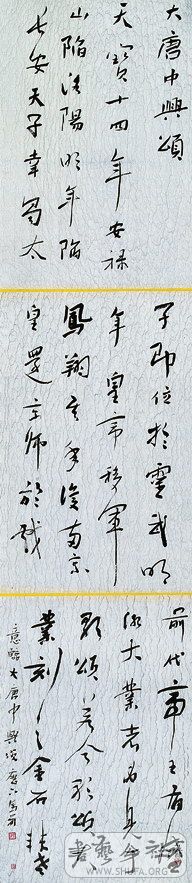 大唐中興頌
天寶十四年安祿
山陷洛陽明年陷
長安天子幸蜀太
子即位於靈武明
年皇帝移軍
鳳翔其年復兩京
皇還京師於戲
前代帝王有
大業者必見
歌頌若今歌頌
業刻之金石
意臨大唐中興頌
書藝公社
WWW.SHUFA.ORG